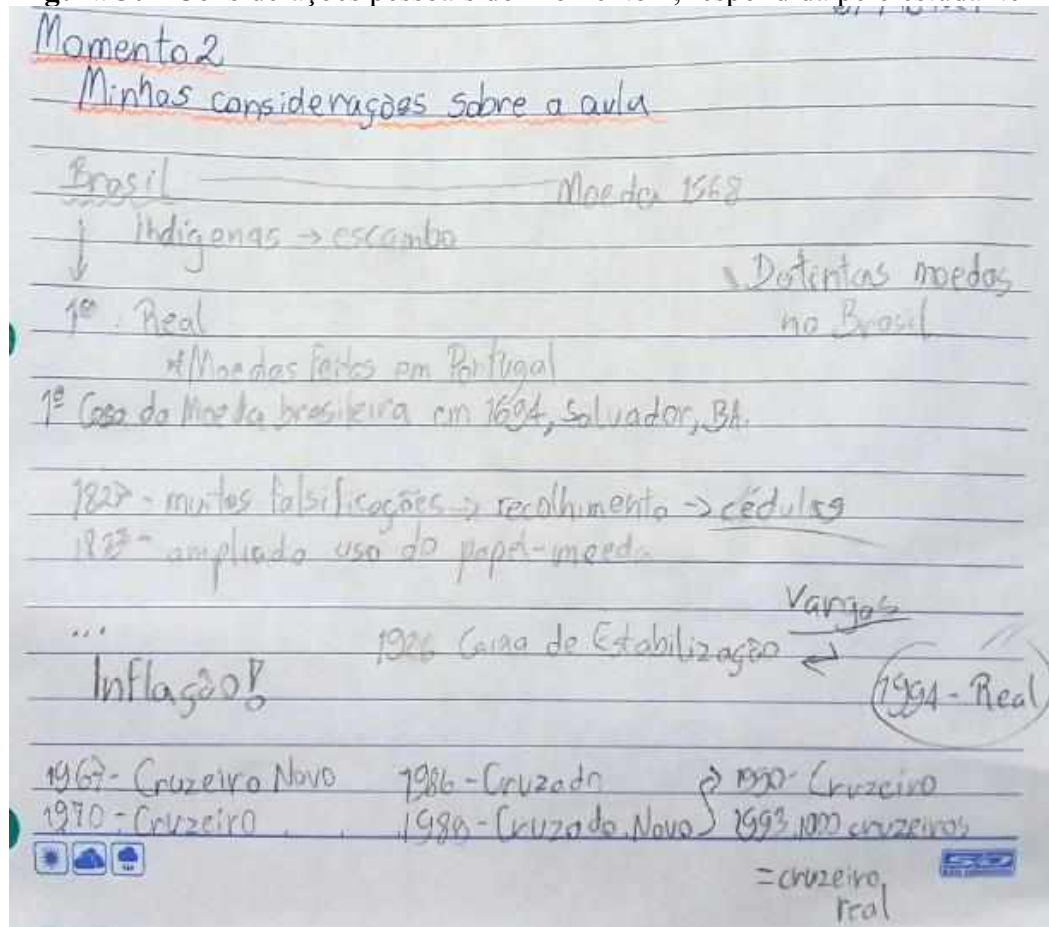 Momento 2
Minhas considerações sobre a aula
Brasil Moeda 1568
indígenas → escambo
Distintas moedas
no Brasil
1º Real
*Moedas feitas em Portugal
1ª Casa da Moeda brasileira em 1694, Salvador, BA.
1827 - muitas falsificações → recolhimento → cédulas
ampliado uso do papel-moeda
Vargas
... 1926 Caixa de Estabilização
Inflação!
1994 - Real
1967 - Cruzeiro Novo 1986 - Cruzado 1990 - Cruzeiro
1970 - Cruzeiro 1989 - Cruzado Novo 1993 1000 cruzeiros
= cruzeiro
real